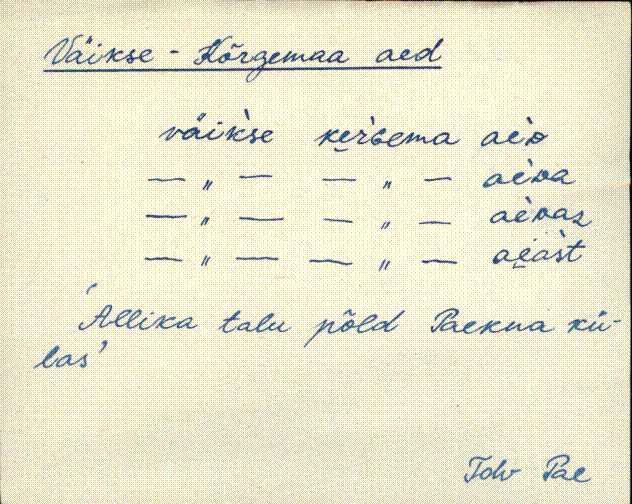 Väikse - Kõrgemaa aed
väik̀se ke̮r̀ɢema aèᴅ
— „ — — „ — aèᴅa
— „ — — „ — aèᴅaz
— „ — — „ — ae̮àst
'Allika talu põld Paekna kü-
las'
Tdv Pae